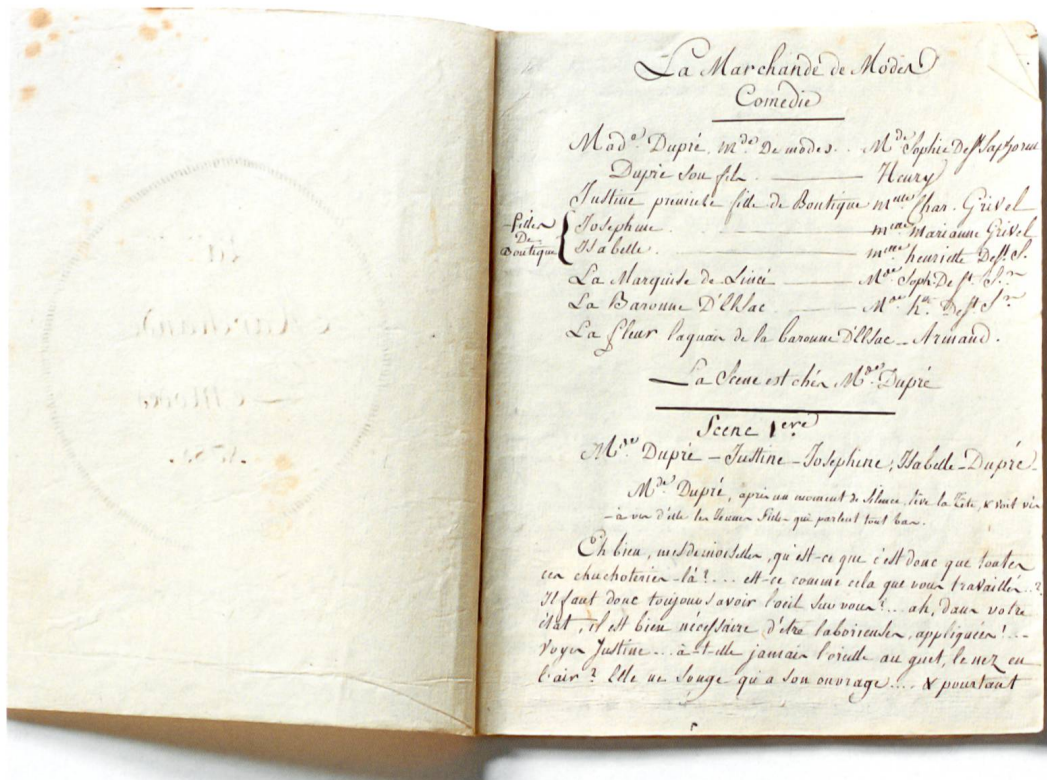 La Marchande de Modes
Comedie
Made. Dupré. mde De modes .. Mde Sophie De St Saphorin
Dupré Son fils. Henry
Justine premiere fille de Boutique melle Char. Grivel
filles De Boutique { Josephine. melle Marianne Grivel
Isabelle. melle henriette De St. S.
La Marquise de Lincé Mde Soph. De St. Sn
La Baronne D'Elsac. Mde hte. De St Sn
La fleur laquais de la baronne D'Elsac - Armand.
La Scene est chés Mde Dupré
Scene 1ere
Mde Dupré - Justine - Josephine, Isabelle - Dupré -
Mde Dupré, après un moment de Silence, lève la Tête, & voit vis
- à vis d'elle les Jeunes filles qui parlent tout bas.
Eh bien, mesdemoiselles, qu'est-ce que c'est donc que toutes
ces chuchoteries-là!... est-ce comme cela que vous travaillés..?
Il faut donc toujours avoir l'oeil sur vous!... ah, dans votre
état, il est bien nécéssaire d'être laborieuses, appliquées!...
Voyés Justine... à-t-elle jamais l'oreille au guet, le nez en
l'air? Elle ne songe qu'a son ouvrage.... & pourtant